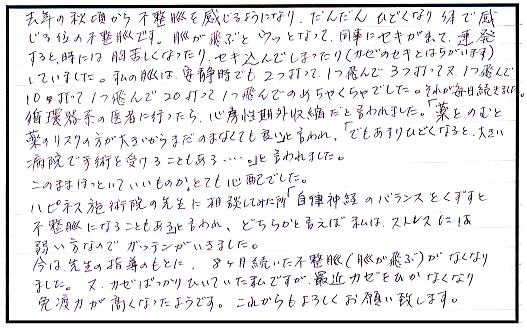 去年の秋頃から不整脈を感じるようになり、だんだんひどくなり体で感
じる位の不整脈です。脈が飛ぶとウッとなって、同時にセキが出て、連発
すると、時には胸苦しくなったり、セキ込んでしまったり(カゼのセキとはちがいます)
していました。私の脈は、安静時でも2つ打って1つ飛んで3つ打って又1つ飛んで
10ヶ打って1つ飛んで20打って1つ飛んでのめちゃくちゃでした。それが毎日続きました。
循環器系の医者に行ったら、心房性期外収縮だと言われました。「薬をのむと
薬のリスクの方が大きいからまだのまなくても良い」と言われ、「でもあまりひどくなると、大きい
病院で手術を受けることもある・・・・。」と言われました。
このままほっといていいものか、とても心配でした。
ハピネス施術院の先生に相談してみた所「自律神経のバランスをくずすと
不整脈になることもある」と言われ、どちらかと言えば私は、ストレスには
弱い方なのでガッテンがいきました。
今は、先生の指導のもとに、8ヶ月続いた不整脈(脈が飛ぶ)がなくなり
ました。又、カゼばっかりひいていた私ですが、最近カゼをひかなくなり
免疫力が高くなったようです。これからもよろしくお願い致します。